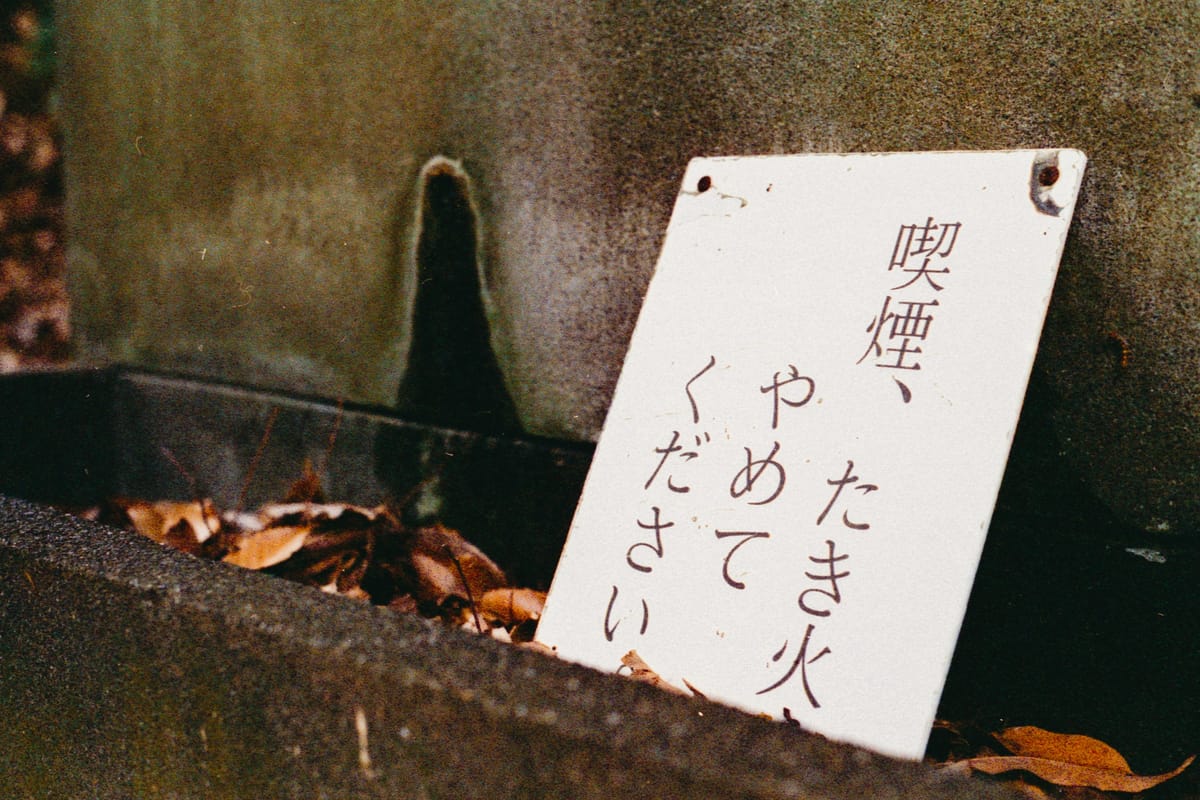 喫煙、
たき火、
やめて
ください。